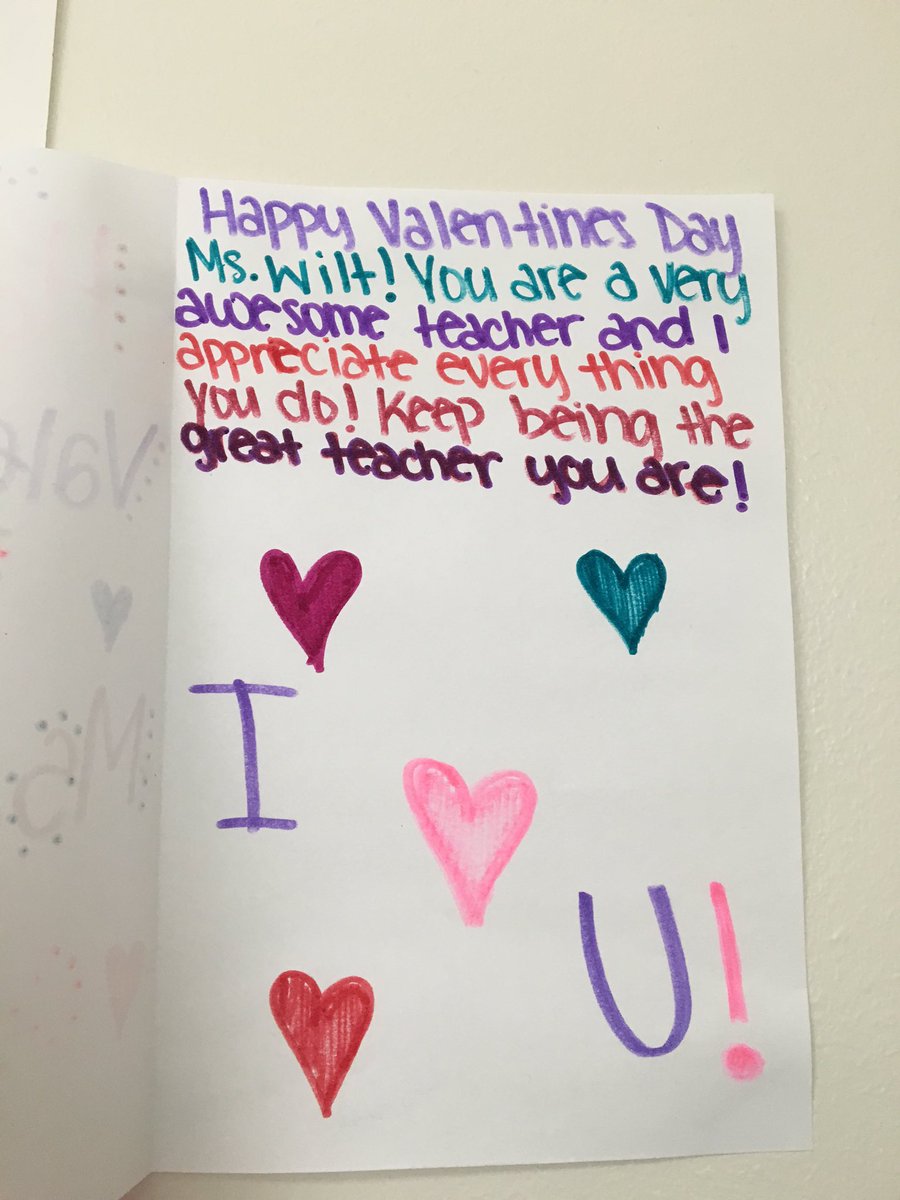 Happy Valentines Day
Ms. Wilt! You are a very
awesome teacher and I
appreciate every thing
you do! Keep being the
great teacher you are!
I
U!